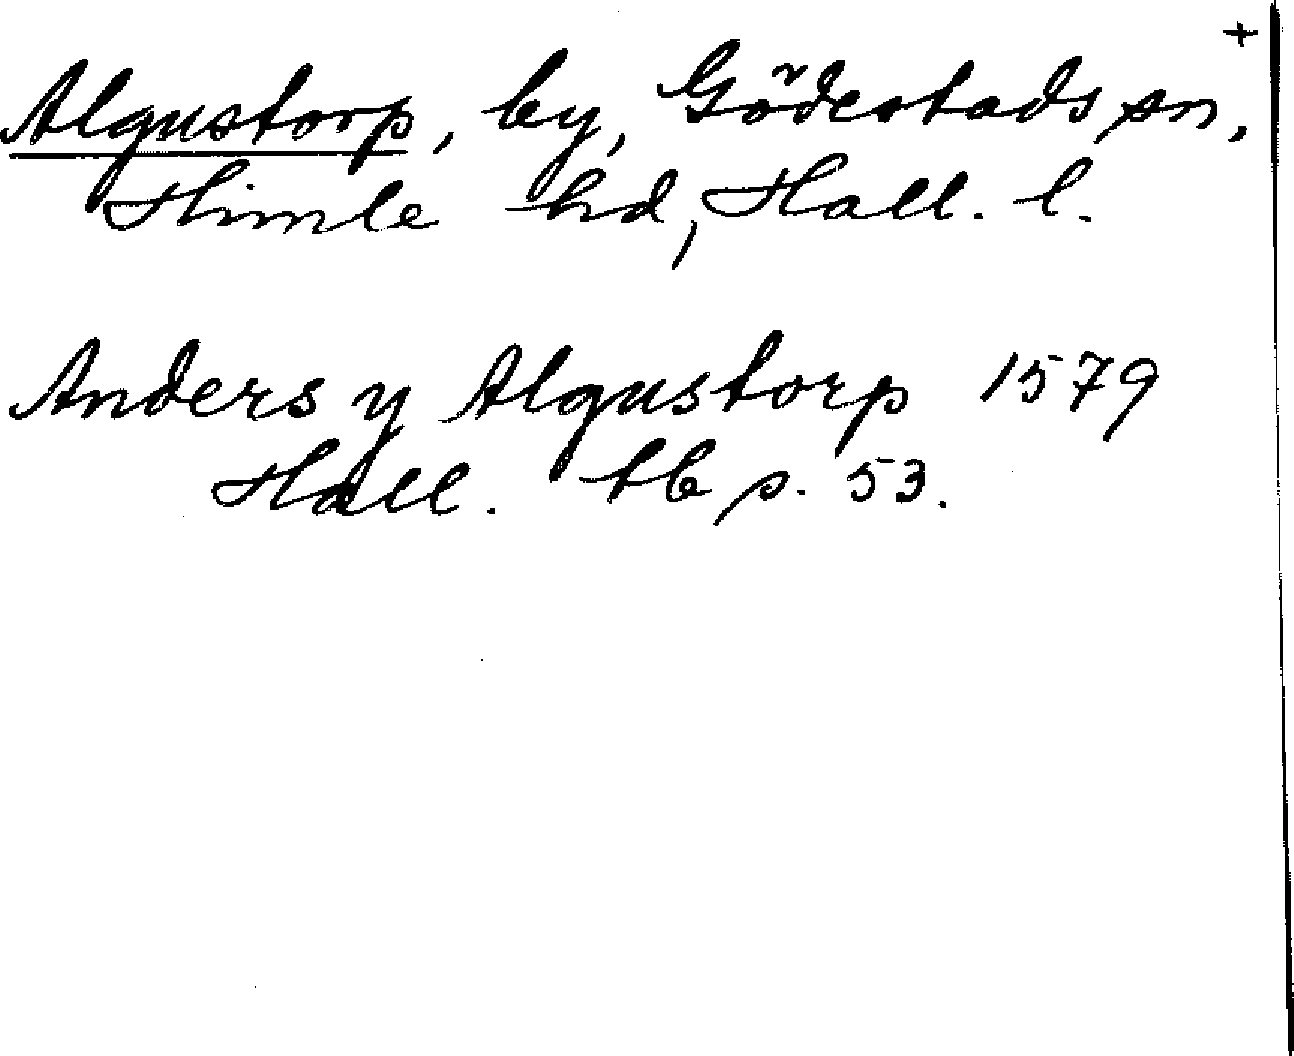 +
Algustorp, by, Gödestads sn,
Himle hd, Hall. l.
Anders y Algustorp 1579
Hall. tb s. 53.